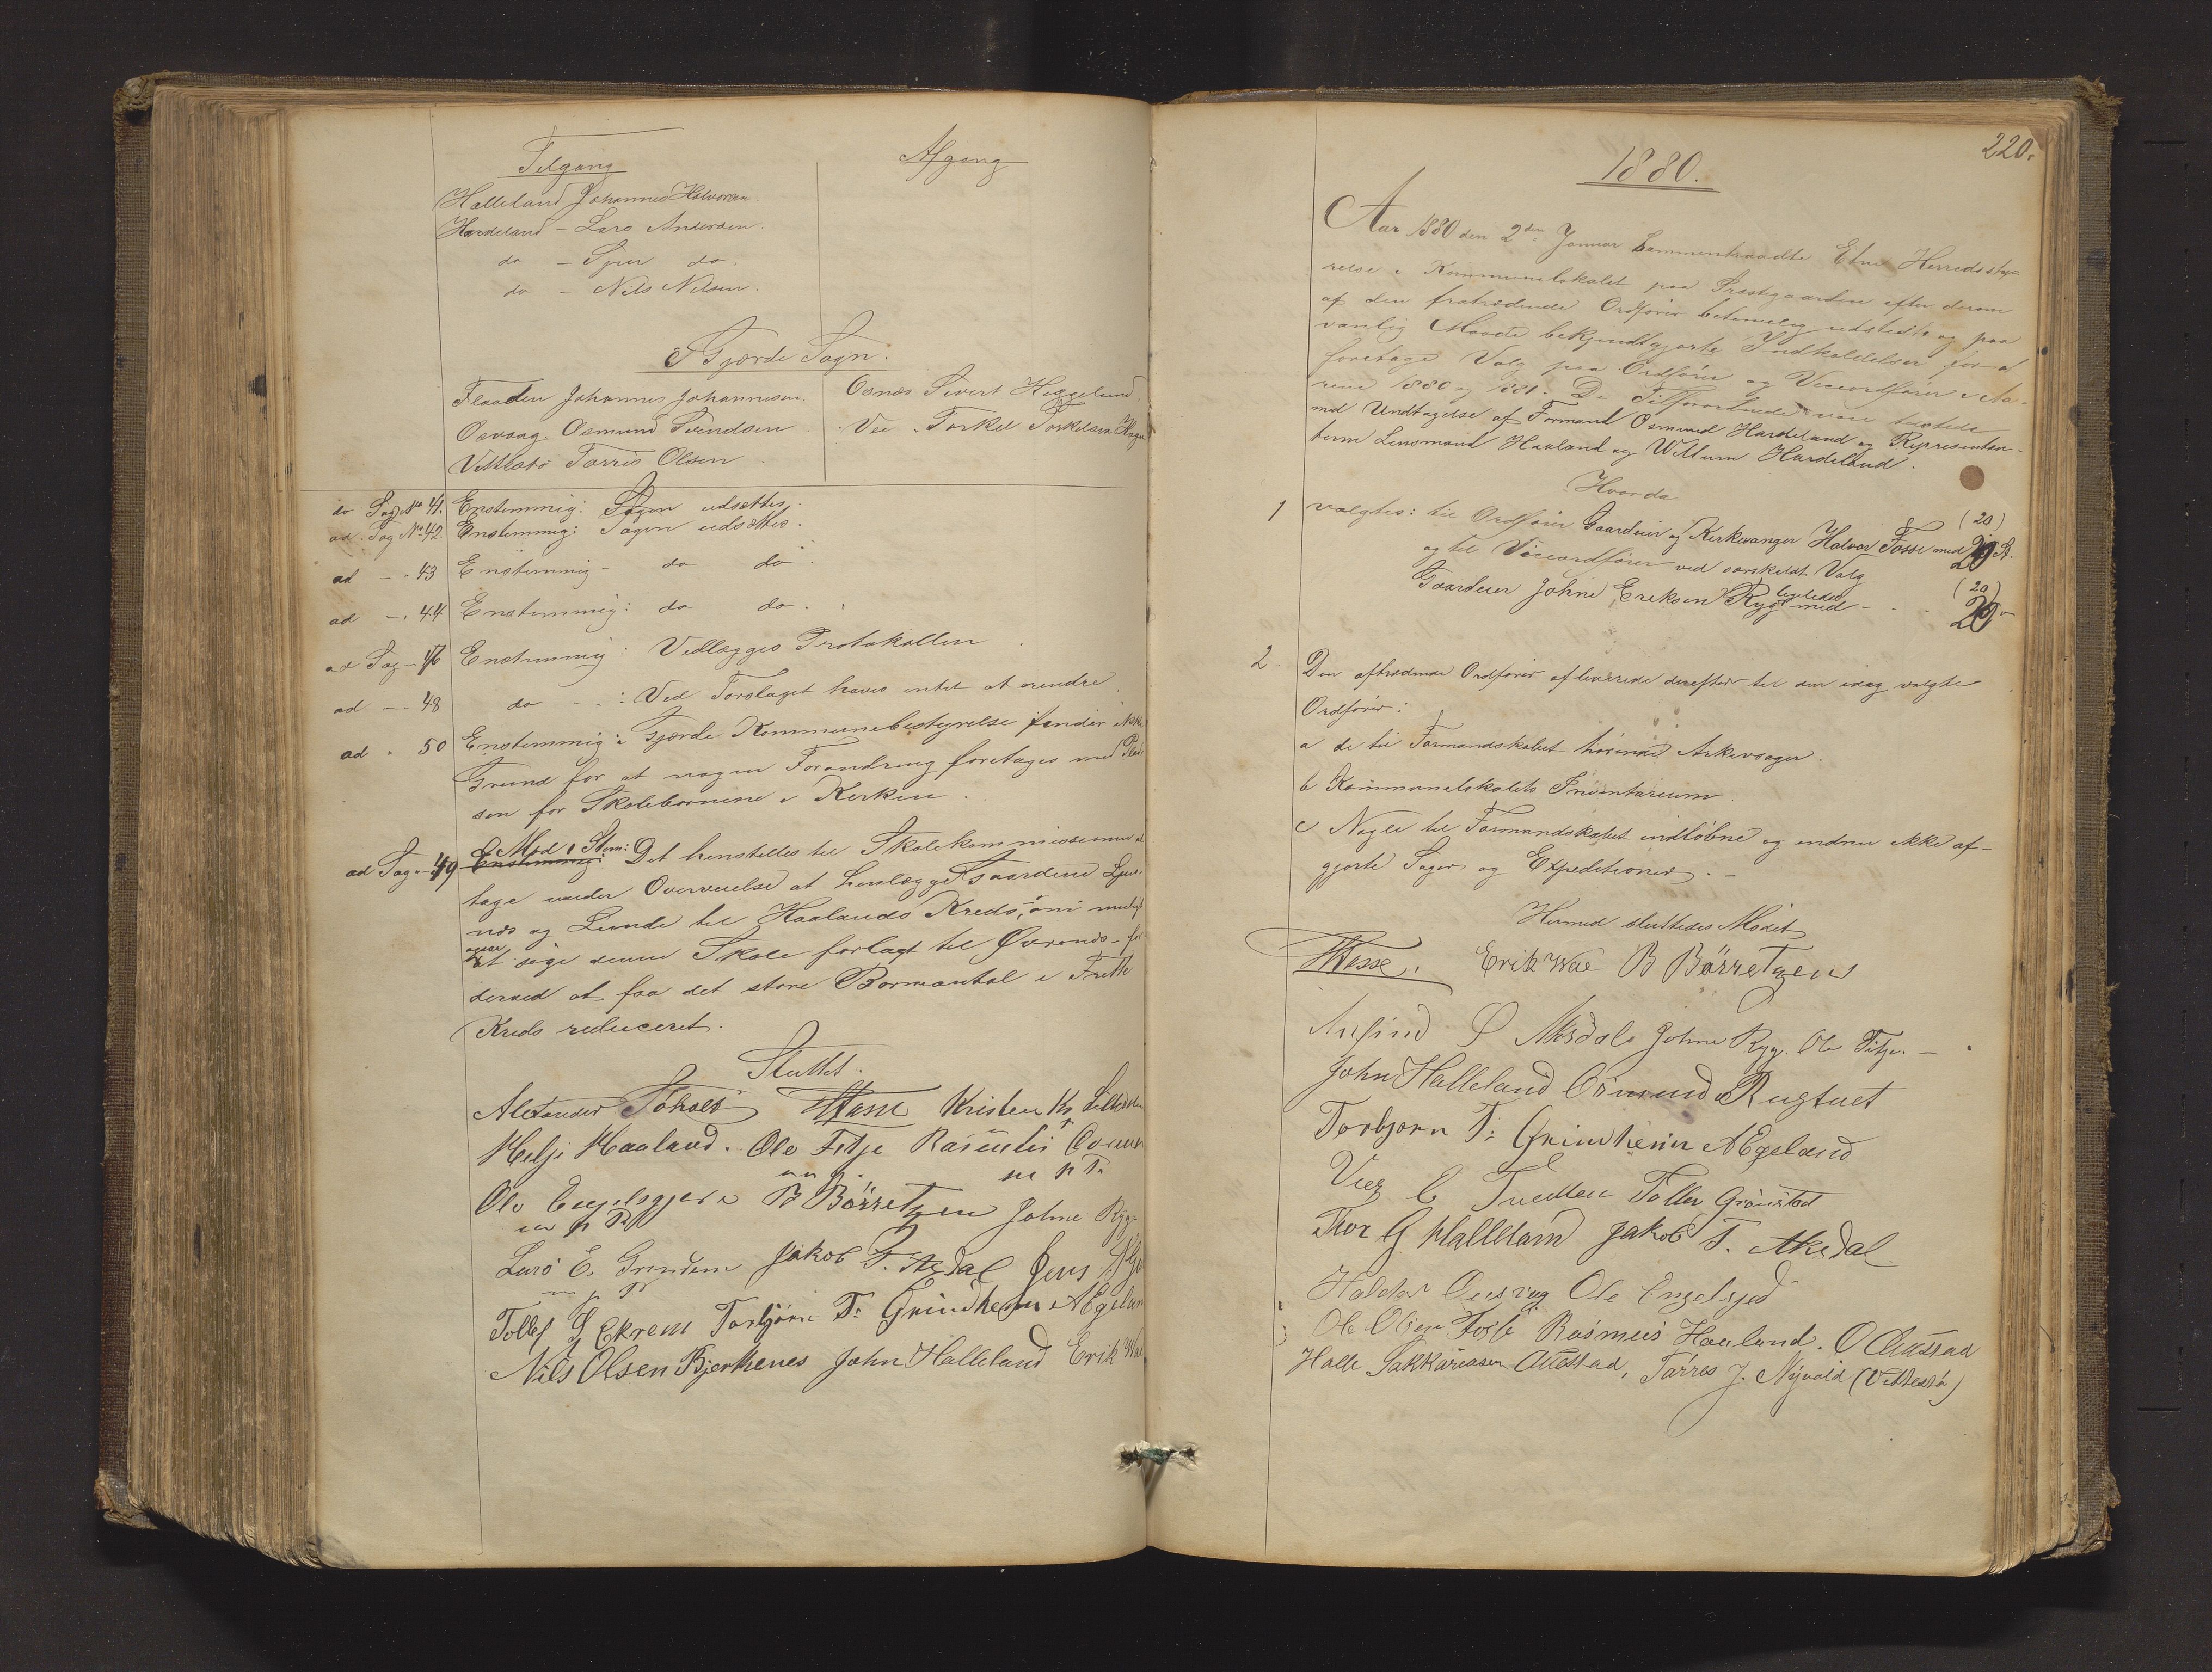 Tilgang
Afgang
Halleland Johannes Halvorsen.
Hardeland - Lars Andersen.
do - Sjur do.
do - Nils Nilsen.
I Gjerde Sogn.
Flaaden Johannes Johannesen
Osnæs Sivert Heggelund.
Osvaag. Osmund Svendsen
Vee. Torkel Torkelsen
Vettestø Tørris Olsen
do Sag No 41. Enstemmig: Sagen udsættes.
ad. Sag No 42. Enstemmig: Sagen udsættes.
ad - " 43 Enstemmig - do do.
ad - " 44 Enstemmig: do do.
ad Sag - 46 Enstemmig: Vedlægges Protokollen
ad - - 48 do - : Ved Forslaget haves intet at erindre.
ad " 50 Enstemmig: Gjerde Kommunebestyrelse finder ikke
Grund for at nogen Forandring foretages med Plad
sen for Skolebørnene i Kirken.
Mod 1 Stem:
ad Sag - 49 Enstemmig: Det henstilles til Skolekommissionen at
tage under Overveielse at henlægge Gaardene
næs og Lunde til Haalands Kreds, om muligt
at søge denne Skole forlagt til for
derved at faa det store Børneantal i Frette
Kreds reduceret.
Sluttet.
Alexander Tøhole HFosse Kristen Kr
Helje Haaland. Ole Fitje Rasmus
m p. m p P.
Ole Engelsgjerd B Børretzen Johne Ryg
m p P.
Lars E. Grindem Jakob T. Aksdal Jens
m p P.
Tollef G Ekrem Torbjørn T. Grindheim AEgeland
Nils Olsen Bjerkenes John Halleland Erik Wae
220.
1880.
Aar 1880 den 2den Januar sammentraadte Etne Herredssty-
relse i Kommunelokalet paa Præstegaarden efter derom
af den fratrædende Ordfører betimelig udstedte og paa
vanlig Maade bekjendtgjorte Indkaldelser for at
foretage Valg paa Ordfører og Viceordfører i Aa-
rene 1880 og 1881. De Tilforordnede vare tilstede
med Undtagelse af Formand Osmund Hardeland og Representan-
terne Lensmand Haaland og Willum Hardeland.
Hvorda
1 valgtes: til Ordfører Gaardeier og Kirkesanger Halvor Fosse med 20 St.
(20)
og til Viceordfører ved særskildt Valg
Gaardeier Johne Eriksen Ryg ligeledes med - - 20 -
(20)
2. Den aftrædende Ordfører afleverede derefter til den idag valgte
Ordfører:
a de til Formandskabet hørende Arkivsager.
b Kommunelokalets Inventarium.
c Nøgle til Formandskabet indløbne og endnu ikke af-
gjorte Sager og Expeditioner. -
Hermed sluttedes Mødet
HFosse. Erik Wae B Børretzen
Anfind Ø Aksdal Johne Ryg. Ole Fitje. -
John Halleland Osmund Rygtuet
Torbjørn T. Grindheim AEgeland
Tollev Grønstad
Thor G Halleland Jakob T. Aksdal
Haldor Ole Engelsgjed
Ole Olsen Rasmus Haaland. O Austad
Halle Sakkariasen Austad, Tørres J. Nyvold (Vettestø)